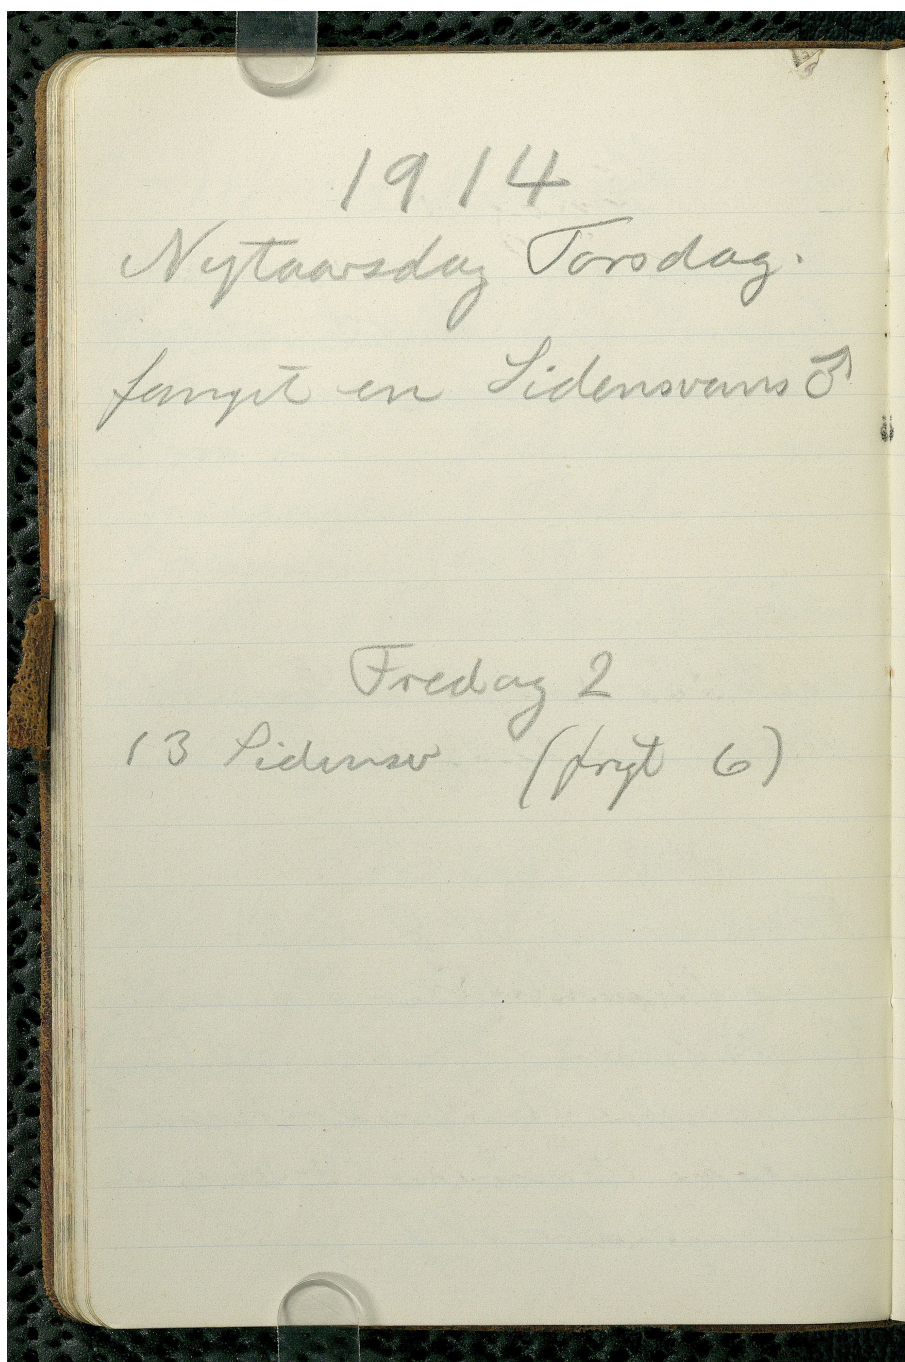 1914
Nytaarsdag Torsdag.
fanget en Sidensvans ♂
Fredag 2
13 Sidensv ( 6)